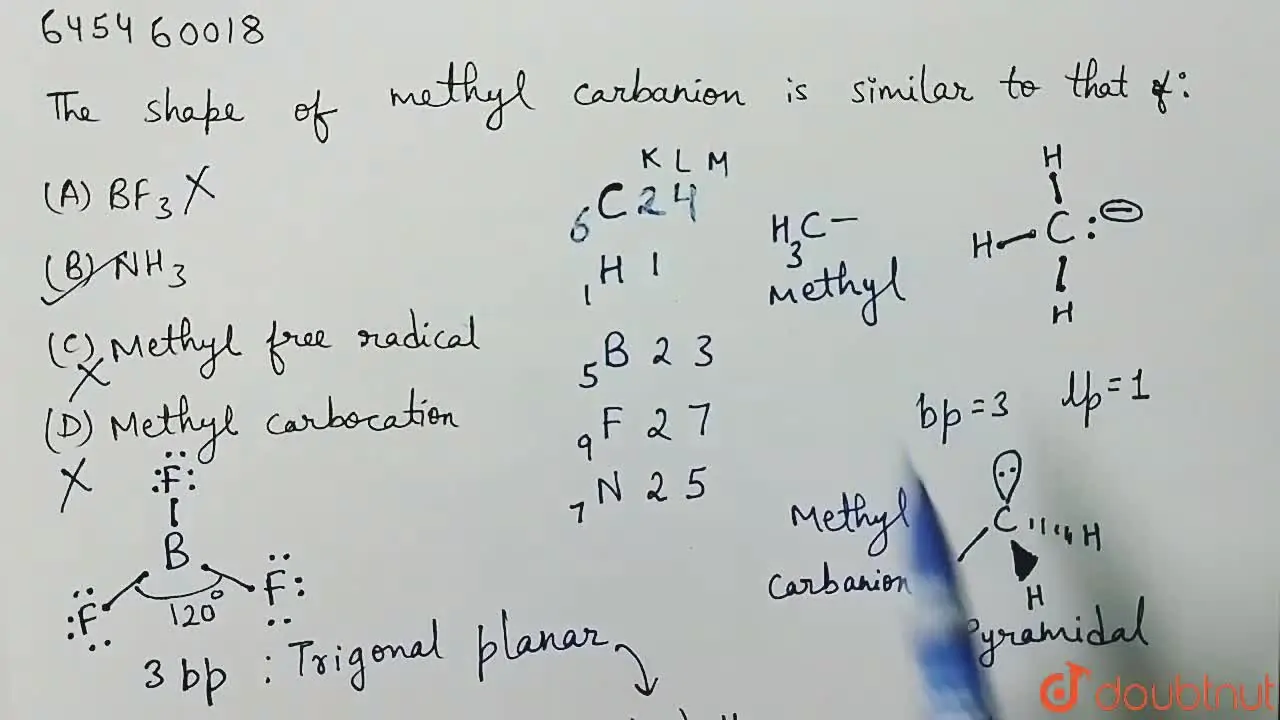 645460018
The shape of methyl carbanion is similar to that of:
(A) BF3 X
(B) NH3
(C) Methyl free radical
X
(D) Methyl carbocation
X
K L M
6C 2 4
1H 1
5B 2 3
9F 2 7
7N 2 5
H3C—
Methyl
H
H C: ⊖
H
bp=3 lp=1
F
B
F F
120°
3 bp : Trigonal planar
Methyl
carbanion
C H
H
Pyramidal
doubtnut